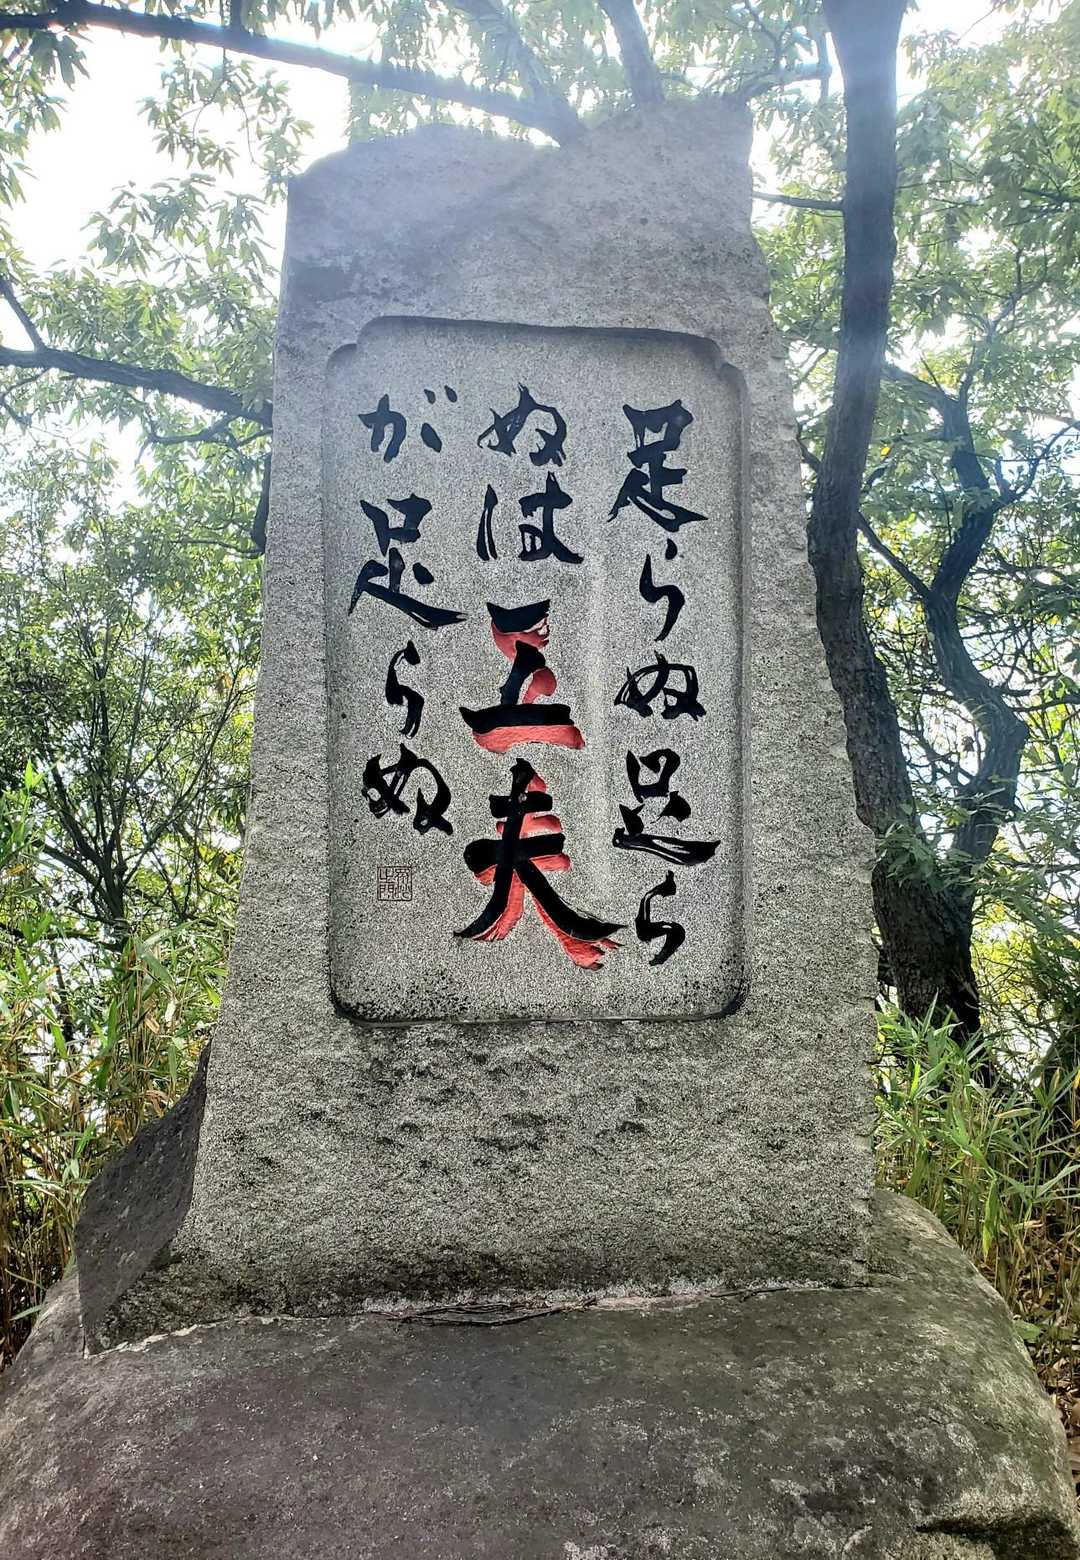 足らぬ足ら
ぬは工夫
が足らぬ